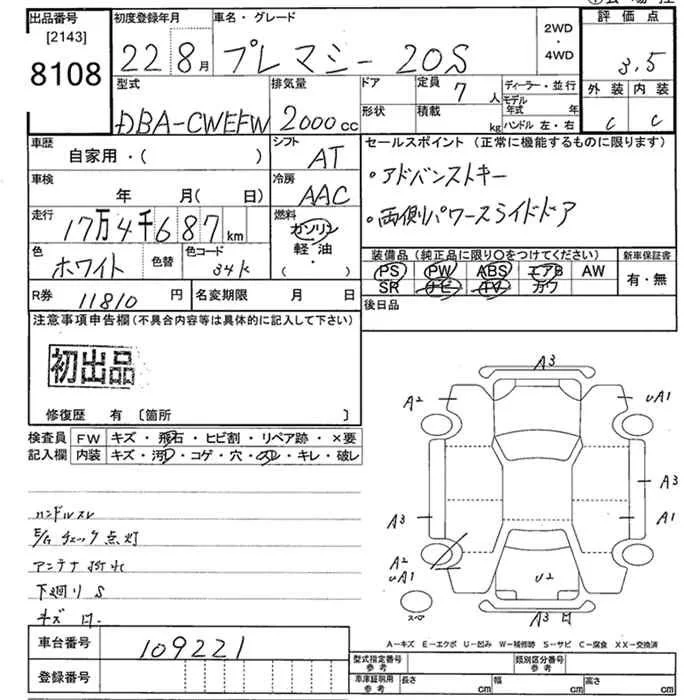 出品番号 初度登録年月 車名・グレード 評価点
[2143]
8108 22 8月 プレマシー 20S 2WD・4WD 3.5
型式 排気量 ドア 定員 7人 ディーラー・並行 外装 内装
DBA-CWEFW 2000cc 形状 積載 kg モデル年式 年 ハンドル 左・右 C C
車歴 シフト セールスポイント (正常に機能するものに限ります)
自家用・( ) AT ・アドバンストキー
車検 冷房
年 月( 日) AAC ・両側パワースライドドア
走行 燃料
17万4千687km ガソリン
軽・油
・
色 色替 色コード 装備品 (純正品に限り〇をつけてください) 新車保証書
ホワイト 34K PS PW ABS エアB AW 有・無
SR ナビ TV カワ
R券 11810円 名変期限 月 日 後日品
注意事項申告欄(不具合内容等は具体的に記入して下さい)
初出品
修復歴 有 〔箇所 〕
検査員 FW キズ・飛石・ヒビ割・リペア跡・×要
記入欄 内装 キズ・汚レ・コゲ・穴・スレ・キレ・破レ
ハンドルスレ
E/g チェック点灯
アンテナ折れ
下廻りS
キズ 凹
A3
A2
UA1
A3
A3
A1
A2
UA1
U2
スペア
A3 凹
A-キズ E-エクボ U-凹み W-補修跡 S-サビ C-腐食 XX-交換済
車台番号 109221
登録番号
型式指定番号 参考 類別区分番号 参考
車庫証明用 参考 長さ cm 幅 cm 高さ cm